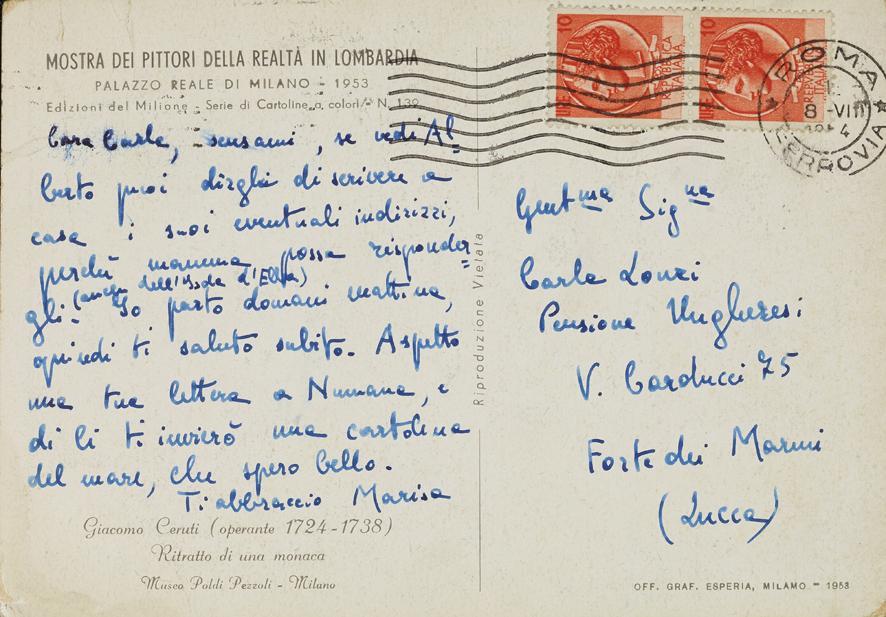 MOSTRA DEI PITTORI DELLA REALTÀ IN LOMBARDIA
PALAZZO REALE DI MILANO - 1953
Edizioni del Milione - Serie di Cartoline a colori - N. 139
Cara Carla, scusami, se vedi Al=
berto puoi dirgli di scrivere a
casa i suoi eventuali indirizzi,
perché mamma possa risponder=
(anche dell'Isola d'Elba)
gli. Io parto domani mattina,
quindi ti saluto subito. Aspetto
una tua lettera a Numana, e
di lì ti invierò una cartolina
del mare, che spero bello.
Ti abbraccio Marisa
Giacomo Ceruti (operante 1724-1738)
Ritratto di una monaca
Museo Poldi Pezzoli - Milano
Riproduzione Vietata
10 LIRE REPUBBLICA ITALIANA
10 LIRE REPUBBLICA ITALIANA
ROMA
8 -VIII
FERROVIA
Gent.ma Sig.na
Carla Lonzi
Pensione Ungheresi
V. Carducci 75
Forte dei Marmi
(Lucca)
OFF. GRAF. ESPERIA, MILANO - 1953